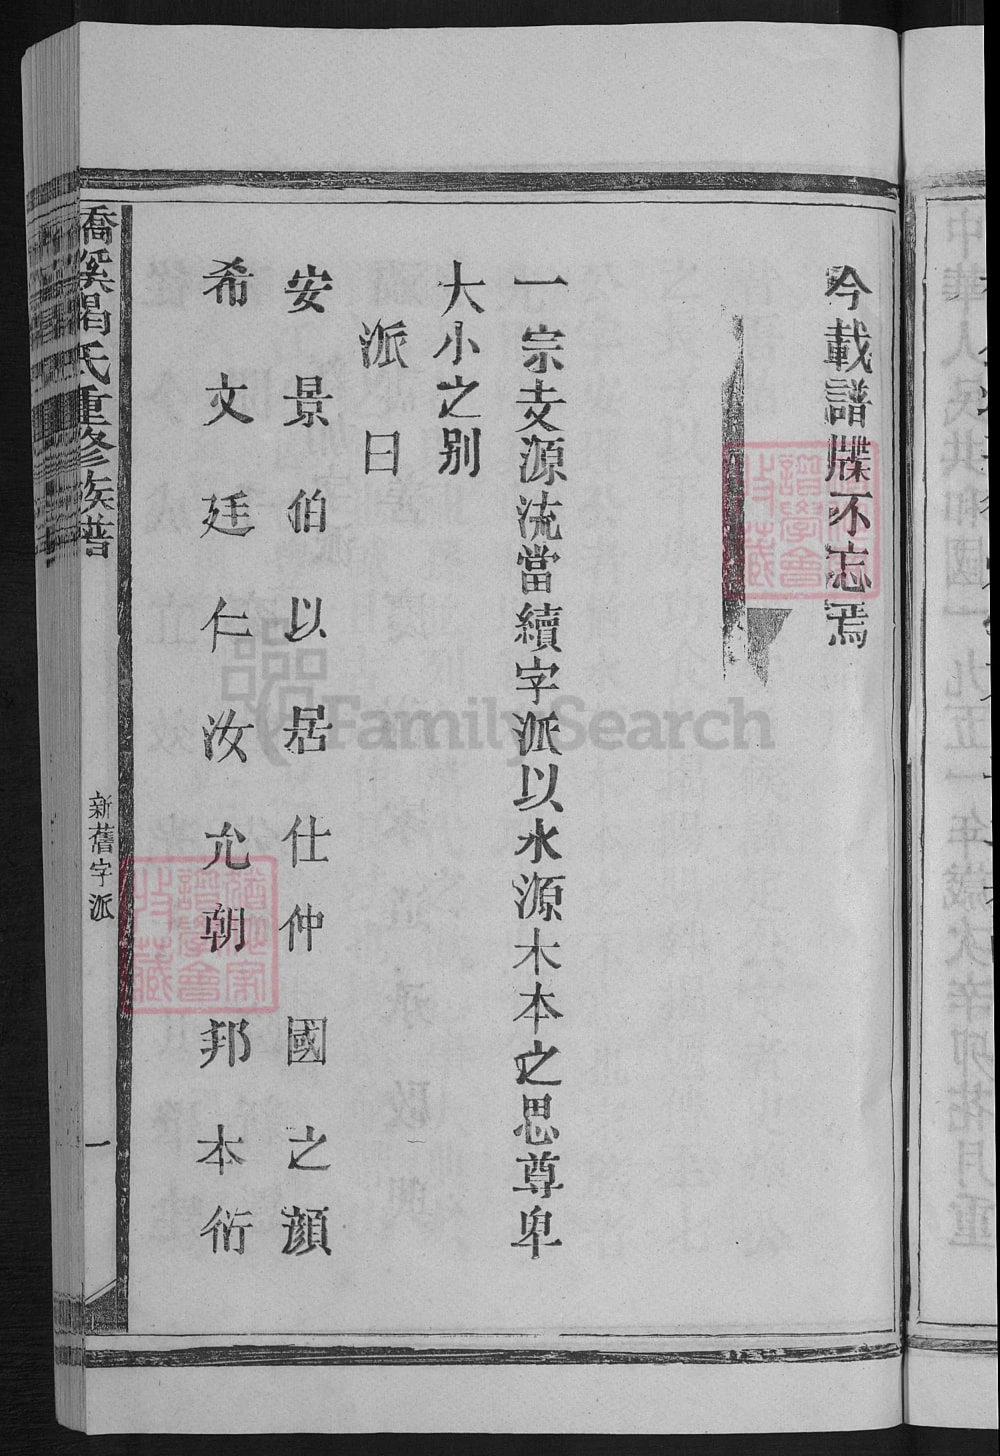 今載譜牒不忘焉
一宗支源流當續字派以水源木本之思尊卑
大小之别
派曰
安景伯以居仕仲國之顔
希文廷仁汝允朝邦本衍
氏重修族譜
新舊字派
一
譜學會
收藏
譜學會
收藏
FamilySearch